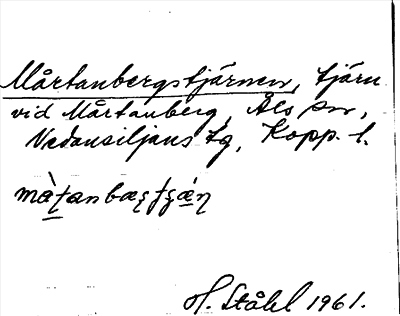 Mårtanbergstjärnen, tjärn
vid Mårtanberg, Åls sn,
Nedansiljans tg, Kopp. l.
màƫanbæʂƫʂǽɳ
H. Ståhl 1961.